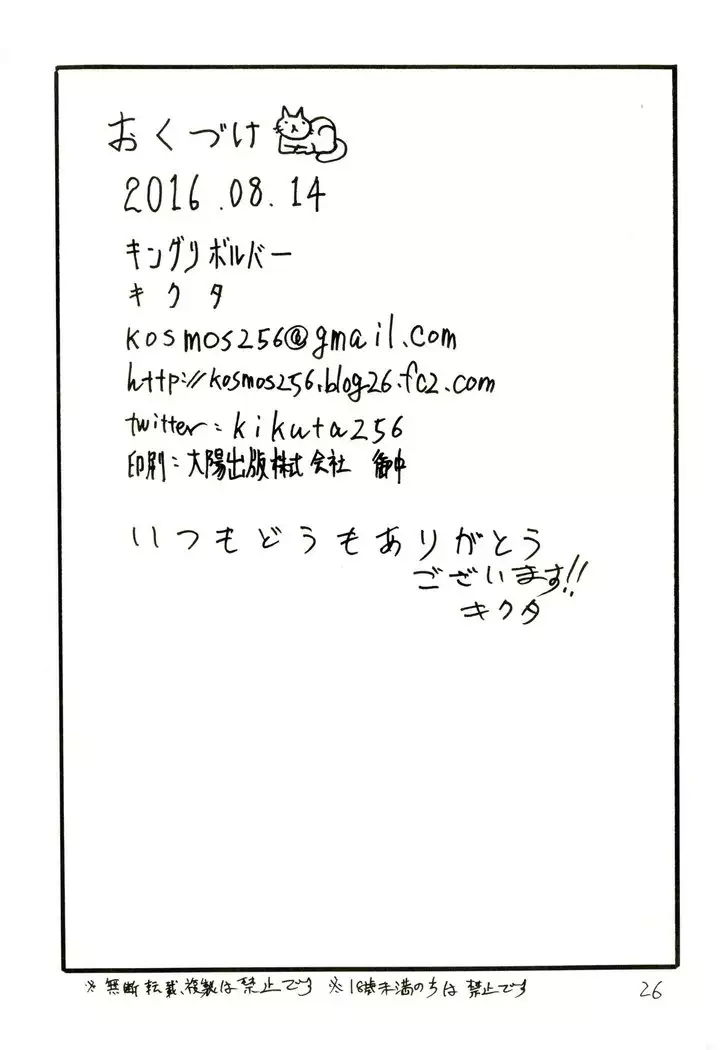 おくづけ
2016.08.14
キングリボルバー
キクタ
kosmos256@gmail.com
http://kosmos256.blog26.fc2.com
twitter:kikuta256
印刷:大陽出版株式会社 御中
いつもどうもありがとう
ございます!!
キクタ
※無断転載、複製は禁止です ※18歳未満のちは禁止です
26